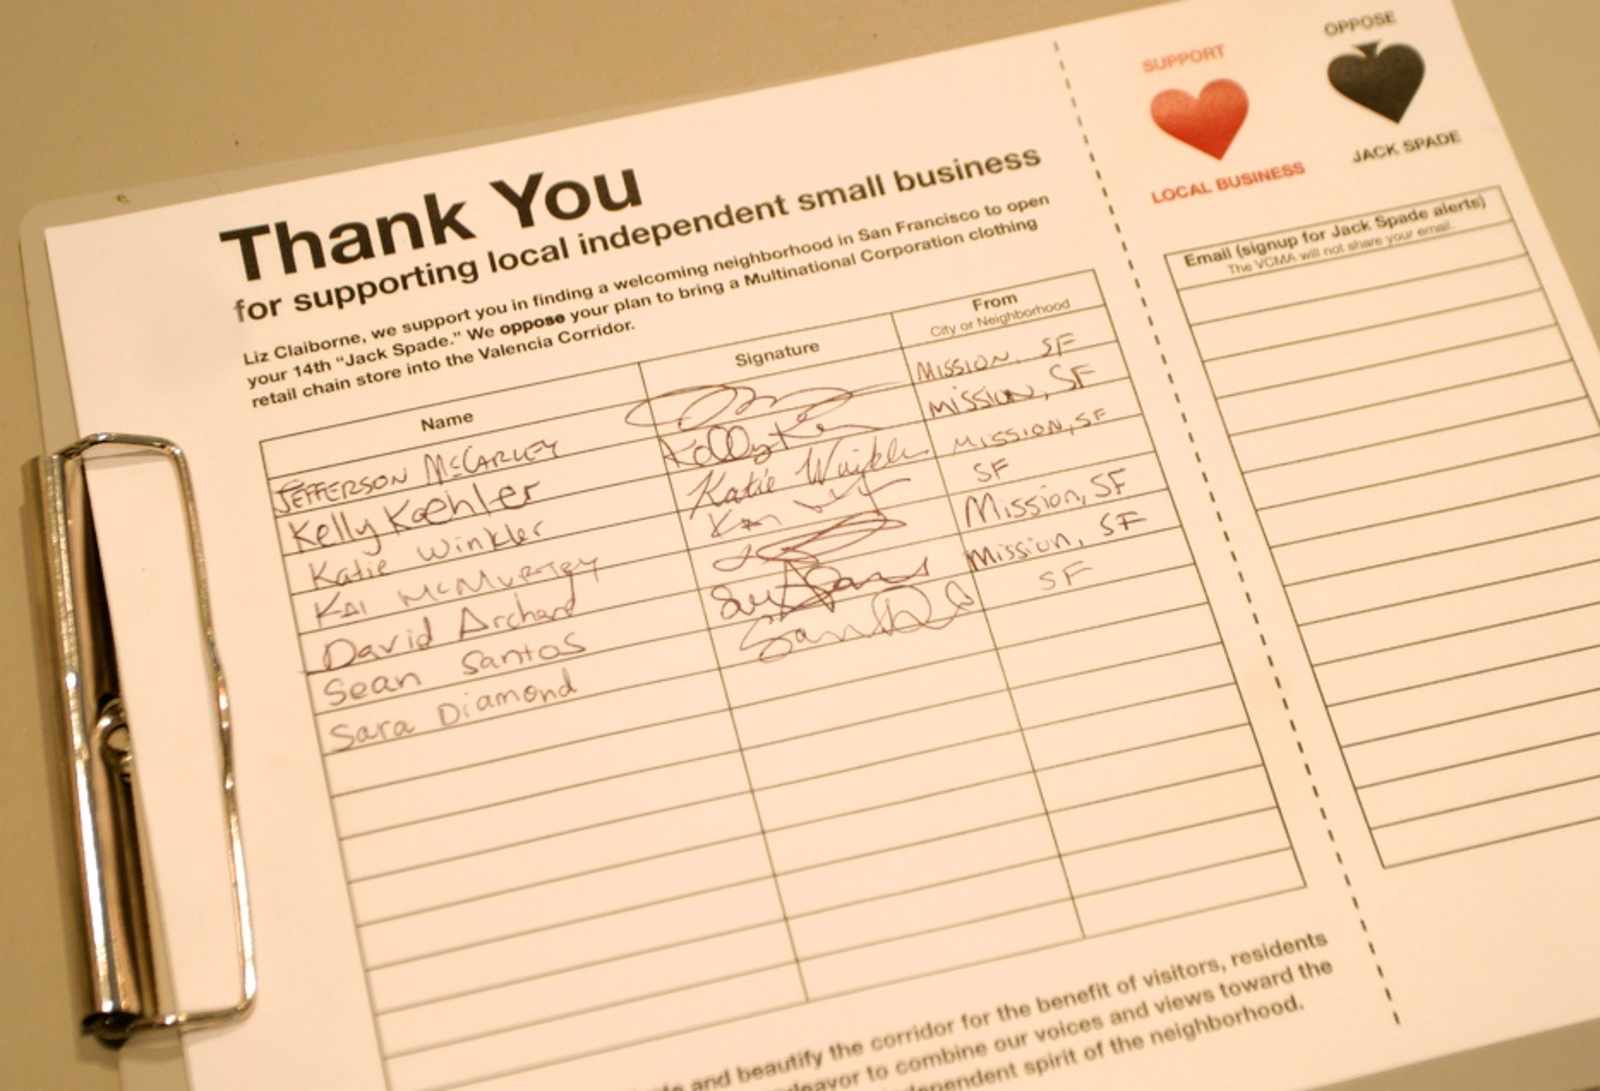 Thank You
for supporting local independent small business
Liz Claiborne, we support you in finding a welcoming neighborhood in San Francisco to open
your 14th “Jack Spade.” We oppose your plan to bring a Multinational Corporation clothing
retail chain store into the Valencia Corridor.
Name Signature From
City or Neighborhood
JEFFERSON McCARLEY MISSION, SF
Kelly Koehler Kelly MISSION, SF
Katie Winkler Katie Winkler MISSION, SF
KAI MCMURTRY Kai SF
David Archard Mission, SF
Sean Santos Mission, SF
Sara Diamond SF
and beautify the corridor for the benefit of visitors, residents
to combine our voices and views toward the
spirit of the neighborhood.
SUPPORT
LOCAL BUSINESS
OPPOSE
JACK SPADE
Email (signup for Jack Spade alerts)
The VCMA will not share your email.